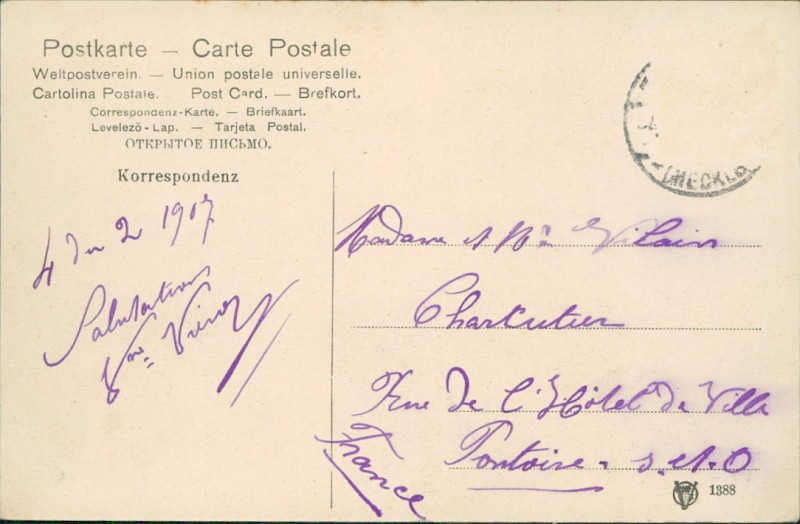 Postkarte — Carte Postale
Weltpostverein. — Union postale universelle.
Cartolina Postale. Post Card. — Brefkort.
Correspondenz-Karte. — Briefkaart.
Levelező-Lap. — Tarjeta Postal.
ОТКРЫТОЕ ПИСЬМО.
Korrespondenz
4 du 2 1907
Salutations
Madame et Mr Vilain
Charcutier
Rue de l'Hôtel de Ville
Pontoise. S.et.O
France
1388